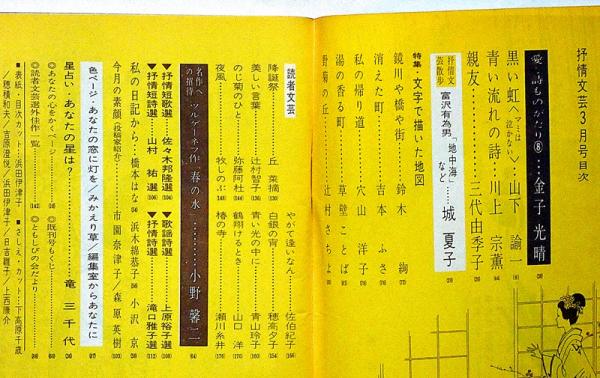 抒情文芸3月号目次
愛・詩ものがたり⑧…金子光晴
黒い虹〈マミは泣かない〉…山下諭一
青い流れの詩…川上宗薫
親友…………三代由季子
抒情文芸散歩 富沢有為男「地中海」など……城夏子
特集・文字で描いた地図
鏡川や橋や街……鈴木絢
消えた町……吉本ふさ
私の帰り道……穴山洋子
湯の香る町……草壁ことば
野菊の丘……辻村さちよ
読者文芸
降誕祭……丘菜摘
美しい言葉……辻村智子
のじ菊のひと……弥藤阿杜
夜風……牧しのぶ
やがて逢いなん……佐伯紀子
白銀の宵……穂高夕子
青い光の中に……青山玲子
鶴翔けるとき……山口洋
椿の寺……瀬川糸井
名作への招待 ツルゲーネフ作 春の水………小野馨二
▼抒情短歌選……佐々木邦隆選
▼抒情短詩選……山村祐選
▼歌謡詩選……上原裕子選
▼抒情詩選……滝口雅子選
私の日記から…橋本はな 浜木綿恭子 小沢京
今月の素顔(投稿家紹介)……市園奈津子/森原英樹
色ページ・あなたの窓に灯を/みかえり草/編集室からあなたに
星占い・あなたの星は?…………竜三千代
◎あなたの心をかくページ
◎読者文芸選外佳作一覧
◎既刊号もくじ
◎ともしびの会だより
■表紙・目次カット…浜田伊津子 ■さしえ・カット…下高原千歳
/穂積和夫/吉原澄悦/浜田伊津子/日吉麗子/上西康介